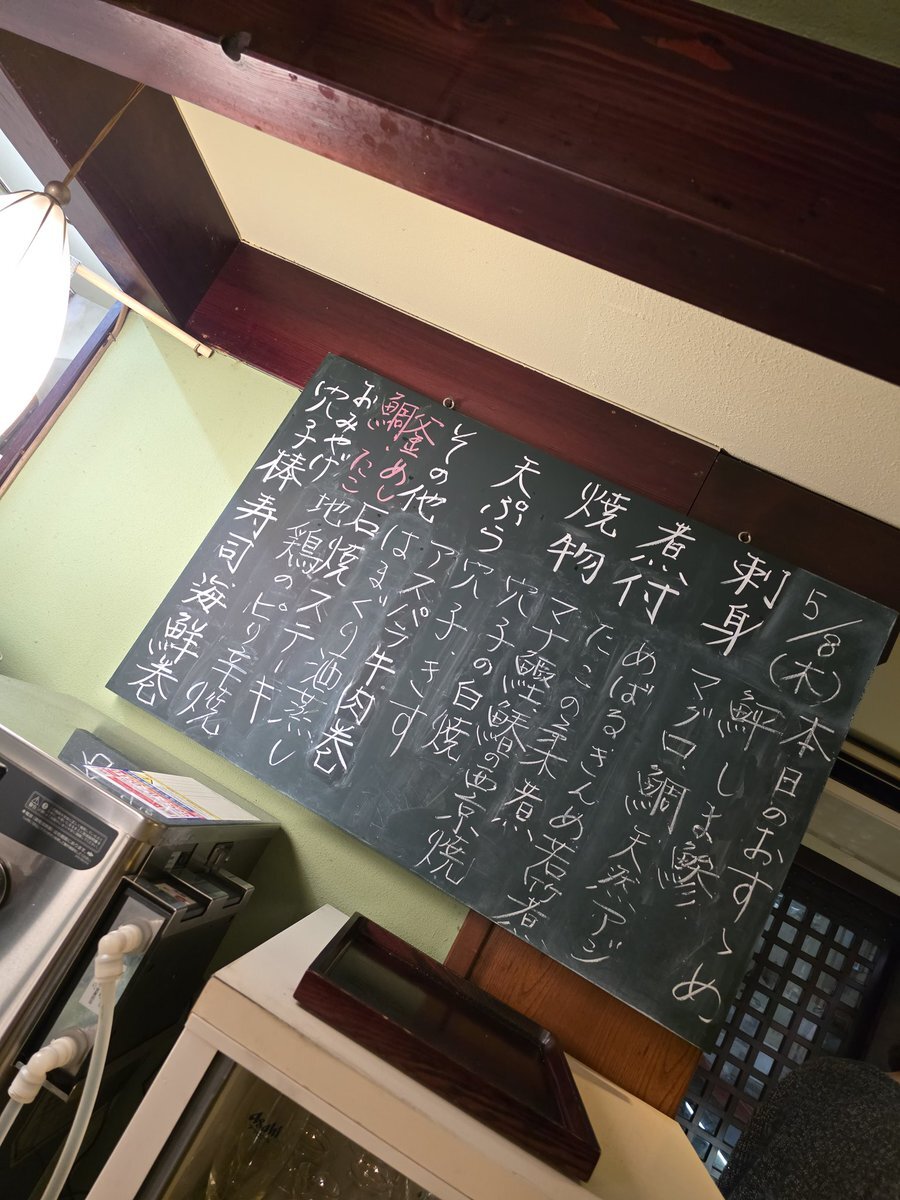 5/8(木)本日のおすゝめ
刺身 鮃 しま鰺
マグロ 鯛 天然アジ
煮付 めばる きんめ 若竹煮
たこの柔煮
焼物 マナ鰹 鰆の西京焼
穴子の白焼
天ぷら 穴子、きす
その他 アスパラ牛肉巻
はまぐり酒蒸し
石焼ステーキ
地鶏のピリ辛焼
釜めし
鯛、たこ
おみやげ
穴子棒寿司 海鮮巻
Asahi